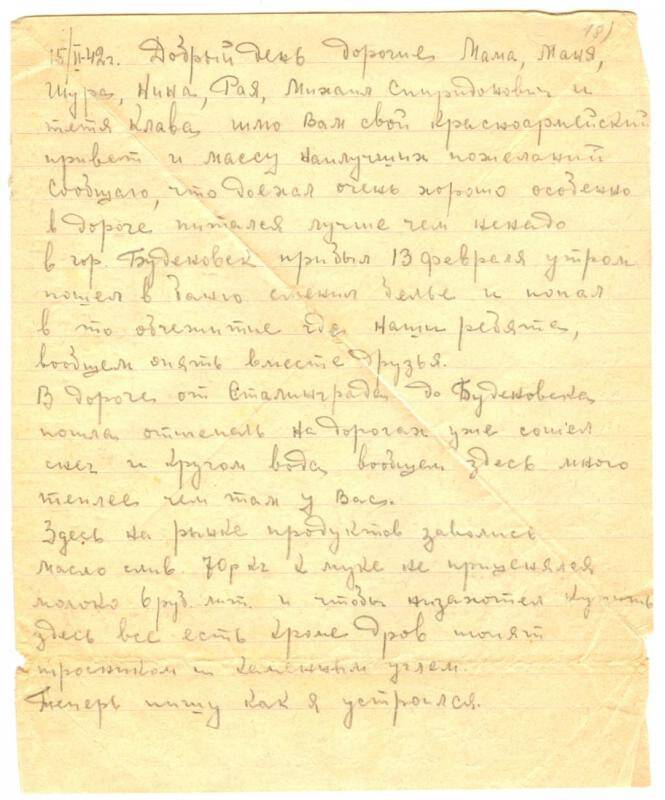 18)
15/II-42г. Добрый день дорогие Мама, Маня,
Шура, Нина, Рая, Михаил Спиридонович и
тетя Клава шлю Вам свой красноармейский
привет и массу наилучших пожеланий
Сообщаю, что доехал очень хорошо особенно
в дороге питался лучше чем ненадо
в гор. Буденовск прибыл 13 февраля утром
пошел в баню сменил белье и попал
в то общежитие где наши ребята,
вообщем опять вместе друзья.
В дороге от Сталинграда до Буденовска
пошла оттепель на дорогах уже сошел
снег и кругом вода вообщем здесь много
теплее чем там у Вас.
Здесь на рынке продуктов завались
масло слив. 70р кг к муке не приценялся
молоко 6 руб. лит. и чтобы низахотел купить
здесь все есть кроме дров топят
тросником и каменным углем.
Теперь пишу как я устроился.